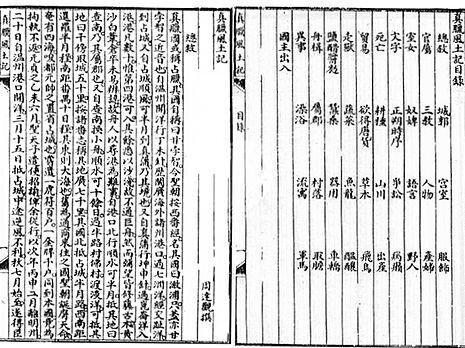 真臘風土記目録
總敘 城郭 宮室 服飾
官屬 三教 人物 產婦
室女 奴婢 語言 野人
文字 正朔時序 爭訟 病癩
死亡 耕種 山川 出產
貿易 欲得唐貨 草木 飛鳥
走獸 蔬菜 魚龍 醞釀
鹽醋醬麴 蚕桑 器用 車轎
舟楫 屬郡 村落 取膽
異事 澡浴 流寓 軍馬
國主出入
真臘風土記
目録
真臘風土記
周達觀撰
總敘
真臘國或稱占臘其國自稱曰甘孛智今聖朝按西番經名其國曰澉浦只蓋亦甘
孛智之近音也自溫州開洋行丁未針歷閩廣海外諸州港口過七洲洋經交趾洋
到占城又自占城順風可半月到真蒲乃其境也又自真蒲行坤申針過崑崙洋入
港港凡數十惟第四港可入其餘悉以沙淺故不通巨舟然而彌望皆修藤古木黃
沙白葦倉卒未易辨認故舟人以尋港為難事自港口北行順水可半月抵其地曰
查南乃其屬郡也又自查南換小舟順水可十餘日過半路村佛村渡淡洋可抵其
地曰干傍取城五十里按諸番志稱其地廣七千里其國北抵占城半月路西南距
暹羅半月程南距番禺十日程其東則大海也舊為通商來往之國聖朝誕膺天命
奄有四海唆都元帥之置省占城也嘗遣一虎符百戶一金牌千戶同到本國竟為
拘執不返元貞之乙未六月聖天子遣使招諭俾余從行以次年丙申二月離明州
二十日自溫州港口開洋三月十五日抵占城中途逆風不利秋七月始至遂得臣